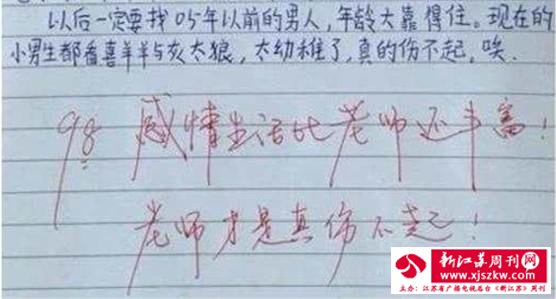 以后一定要找05年以前的男人,年龄大靠得住。现在的
小男生都看喜羊羊与灰太狼,太幼稚了,真的伤不起,唉.
98 感情生活比老师还丰富!
老师才是真伤不起!
新江苏周刊网
www.xjszkw.com
主办:江苏省广播电视总台《新江苏》周刊